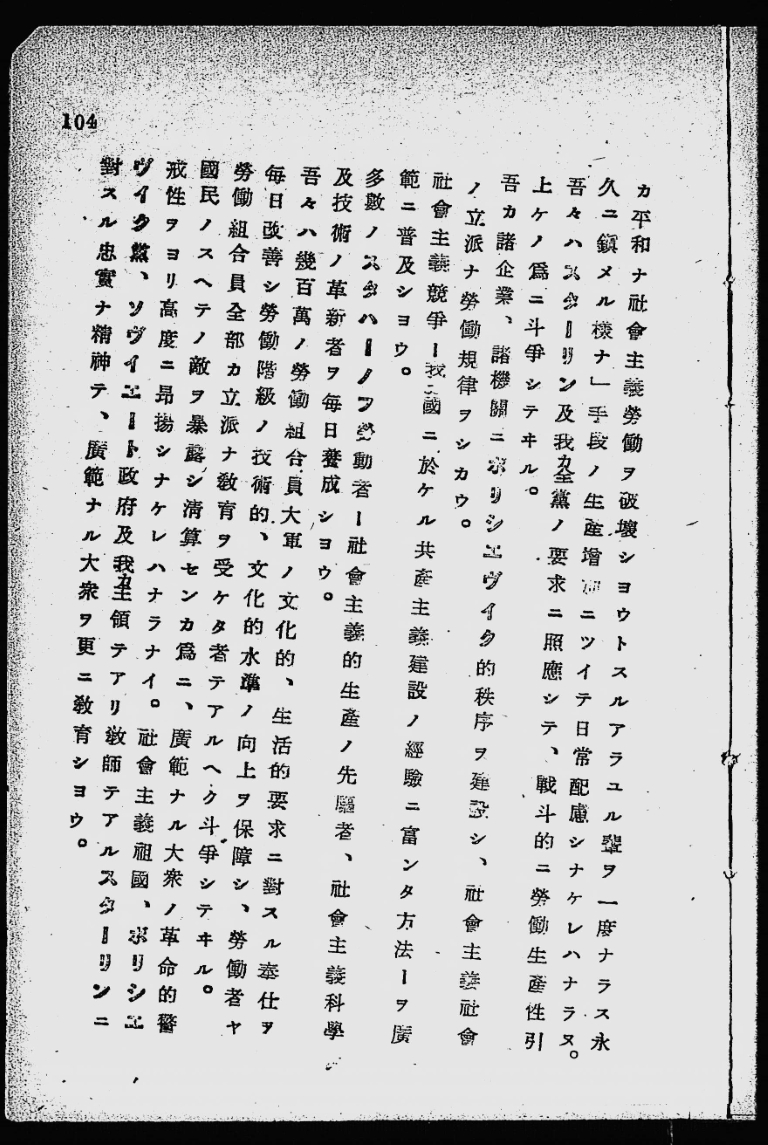 104
カ平和ナ社會主義勞働ヲ破壞シヨウトスルアラユル輩ヲ一度ナラス永
久ニ鎭メル樣ナ」手段ノ生產增ニツイテ日常配慮シナケレハナラヌ。
吾々ハスターリン及我カ全黨ノ要求ニ照應シテ、戰斗的ニ勞働生產性引
上ケノ爲ニ斗爭シテヰル。
吾カ諸企業、諸機關ニボリシエヴイク的秩序ヲ建設シ、社會主義社會
ノ立派ナ勞働規律ヲシカウ。
社會主義競爭ー我國ニ於ケル共產主義建設ノ經驗ニ富ンタ方法ーヲ廣
範ニ普及シヨウ。
多數ノスタハーノフ勞動者ー社會主義的生產ノ先驅者、社會主義科學
及技術ノ革新者ヲ每日養成シヨウ。
吾々ハ幾百萬ノ勞働組合員大軍ノ文化的、生活的要求ニ對スル奉仕ヲ
每日改善シ勞働階級ノ技術的、文化的水準ノ向上ヲ保障シ、勞働者ヤ
勞働組合員全部カ立派ナ敎育ヲ受ケタ者テアルヘク斗爭シテヰル。
國民ノスヘテノ敵ヲ暴露シ清算センカ爲ニ、廣範ナル大衆ノ革命的警
戒性ヲヨリ高度ニ昂揚シナケレハナラナイ。社會主義祖國、ボリシエ
ヴイク黨、ソヴイエート政府及我カ主領テアリ敎師テアルスターリンニ
對スル忠實ナ精神テ、廣範ナル大衆ヲ更ニ敎育シヨウ。